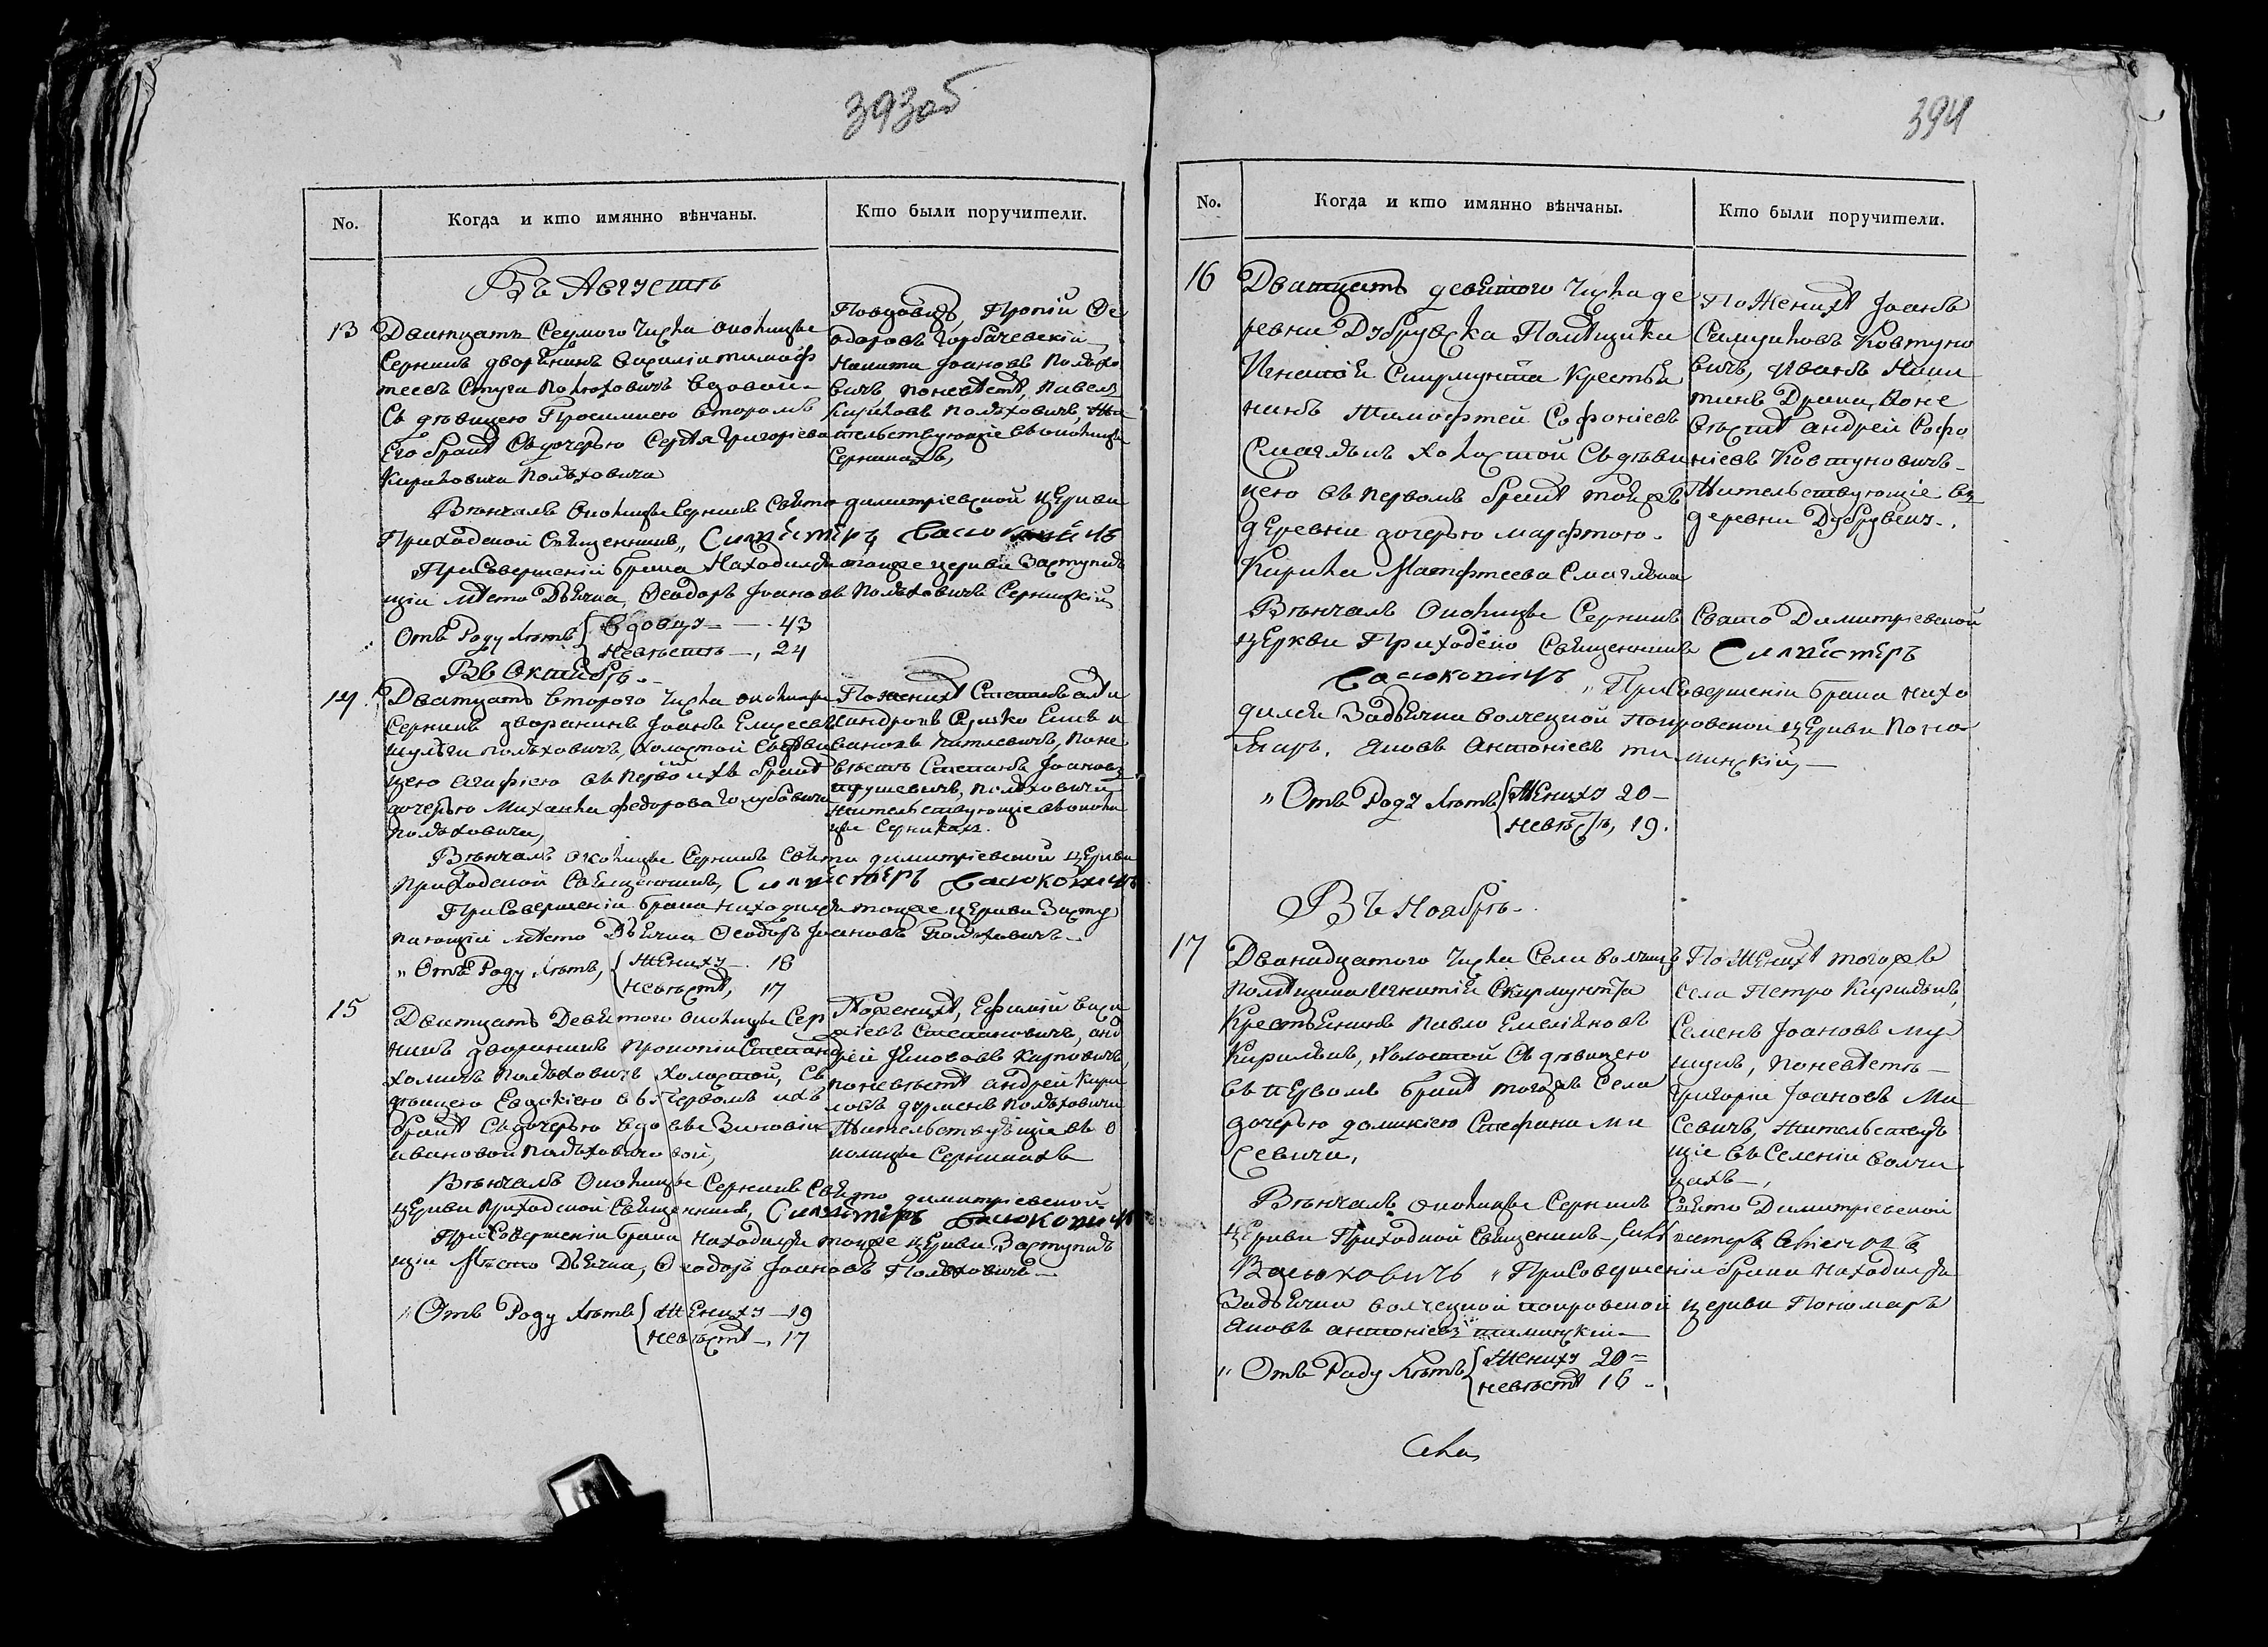 393об
No.
Когда и кто имянно вѣнчаны.
Кто были поручители.
Въ Августѣ
13
Дватцать Седмого Числа околицы
Серникъ дворянинъ Василій тимоф
теевъ Полюховичъ вдовой
Съ дѣвицею вторымъ
Его бракѣ Съ дочерью Сергѣя Григорієва
Кириловича Полѣховича
Повдовцѣ, Ѳе
одоровъ Горбачевскій
Никита Іоановъ Полѣхо
вичъ поневѣстѣ, Павелъ
Кириловъ Полѣховичъ, Жи
тельствующіе въ околицы
Серникахъ,
Вѣнчалъ Околицы Серникъ Свято димитріевской церкви
Приходской Священникъ, Силвестеръ Васюковичъ
При Совершеніи брака Находился тоиже церкви Заступаю
щіи мѣсто Дьячка, Ѳеодоръ Іоановъ Полѣховичъ Серницкій
Отъ Роду Лѣтъ
Вдовцу — 43
Невѣстѣ —, 24
Въ Октябрѣ
14
Дватцать второго Числа околицы
Серникъ дворанинъ Іоанъ Елисеевъ
Шульги полѣховичъ, холостой Съ дѣви
цею Агафіею въ первомъ ихъ бракѣ
дочерью Михаила федорова Голубовича
полѣховича,
Поженихѣ Степанъ
поне
вѣстѣ Степанъ Іоановъ
полѣховичи
жительствующіе въ околи
цы Серникахъ.
Вѣнчалъ околицы Серникъ Свято димитріевской церкви
приходской Священникъ, Силвестеръ Васюковичъ
При Совершеніи брака находился тоиже церкви Засту
пающіи мѣсто Дьячка Ѳеодоръ Іоановъ Полѣховичъ
„ Отъ Роду Лѣтъ,
Жениху — 18
Невѣстѣ, 17
15
Дватцать Девятого околицы Сер
никъ дворянинъ Прокопіи Степановъ
холичъ Полѣховичъ холостой, Съ
дѣвицею Евдокіею въ первомъ ихъ
бракѣ Съ дочерью вдовы Зиновіи
Ивановой Полѣховичовой,
Поженихѣ, Ефимій Васи
ліевъ Степановичъ, анд
рей Якововъ Карповичъ,
поневѣстѣ андрей Кири
ловъ дурменъ Полѣховичи
Жительствующіе въ о
колицы Серникахъ
Вѣнчалъ Околицы Серникъ Свято димитріевской
церкви приходской Священникъ, Силвестеръ Васюковичъ
При Совершеніи брака находился тоиже церкви Заступаю
щіи Мѣсто Дьячка, Ѳеодоръ Іоановъ Полѣховичъ
„ Отъ Роду Лѣтъ
Жениху — 19
Невѣстѣ —, 17
394
No.
Когда и кто имянно вѣнчаны.
Кто были поручители.
16
Дватцать девятого Числа де
ревни Дубрувска Помѣщика
Игнатія Скирмунта Крестья
нинъ Тимофтей Софоніевъ
Смаглѣй холостой Съ дѣви
цею въ первомъ бракѣ той жъ
деревни дочерью марфтою
Кирила Матфтеева Смаглѣя
Поженихѣ Іоанъ
Самуиловъ Ковтуно
вичъ, Иванъ Ники
тинъ Драка, Поне
вѣстѣ андрей Софо
ніевъ Ковтуновичъ
Жительствующіе въ
деревни Дубрувску.
Вѣнчалъ Околицы Серникъ Свято Димитріевской
церкви Приходской Священникъ Силвестеръ
Васюковичъ „ При Совершеніи брака нахо
дился Задьячка волчецкой покровской церкви Поно
марь, Яковъ Антоніевъ Тиминскій —
„ Отъ Роду Лѣтъ
Жениху 20 —
Невѣстѣ, 19.
Въ Ноябрѣ
17
Дванадцатого Числа Села волчицъ
Помѣщика Игнатія Скирмунта
Крестьянинъ Павло Емеліяновъ
Кирильчикъ, холостой Съ дѣвицею
въ первомъ бракѣ тогожъ Села
дочерью домникіею Стефана Ми
севича,
Поженихѣ тогожъ
села Петро
Семенъ Іоановъ Му
поневѣстѣ —
Григорій Іоановъ Ми
севичъ, жительствую
щіе въ Селеніи волчи
цахъ —,
Вѣнчалъ околицы Серникъ Свято Димитріевской
Церкви Приходской Священникъ, Силвестеръ Алексіевъ
Васюковичъ „ При Совершеніи брака находился
Задьячка волчецкой покровской церкви Пономарь
Яковъ антоніевъ тиминскій —
„ Отъ Роду Лѣтъ
Жениху 20 =
невѣстѣ 16